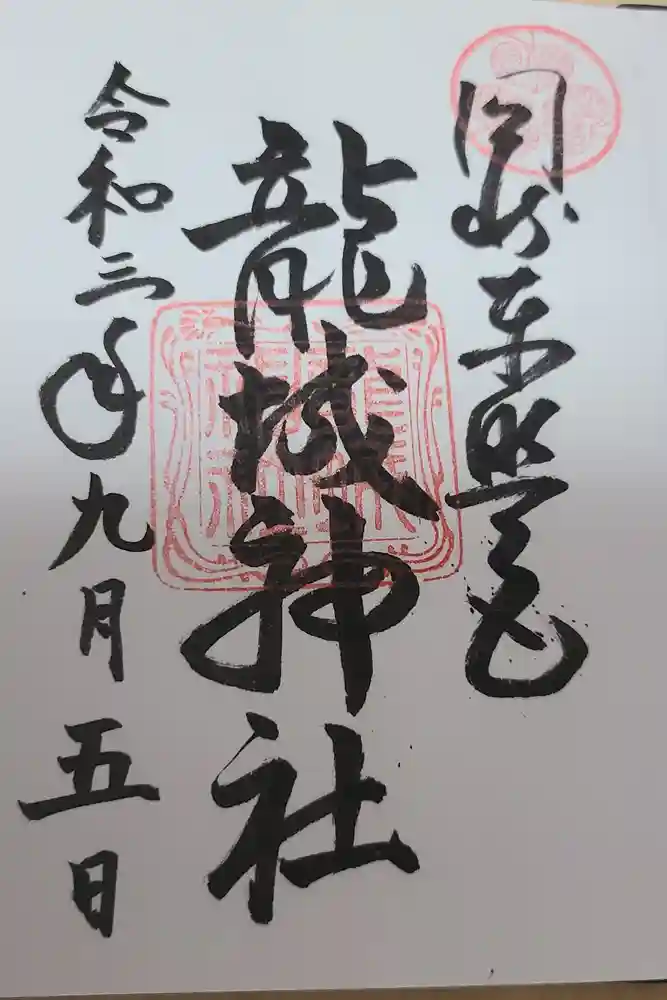 岡崎東照宮
龍城神社
令和三年九月五日